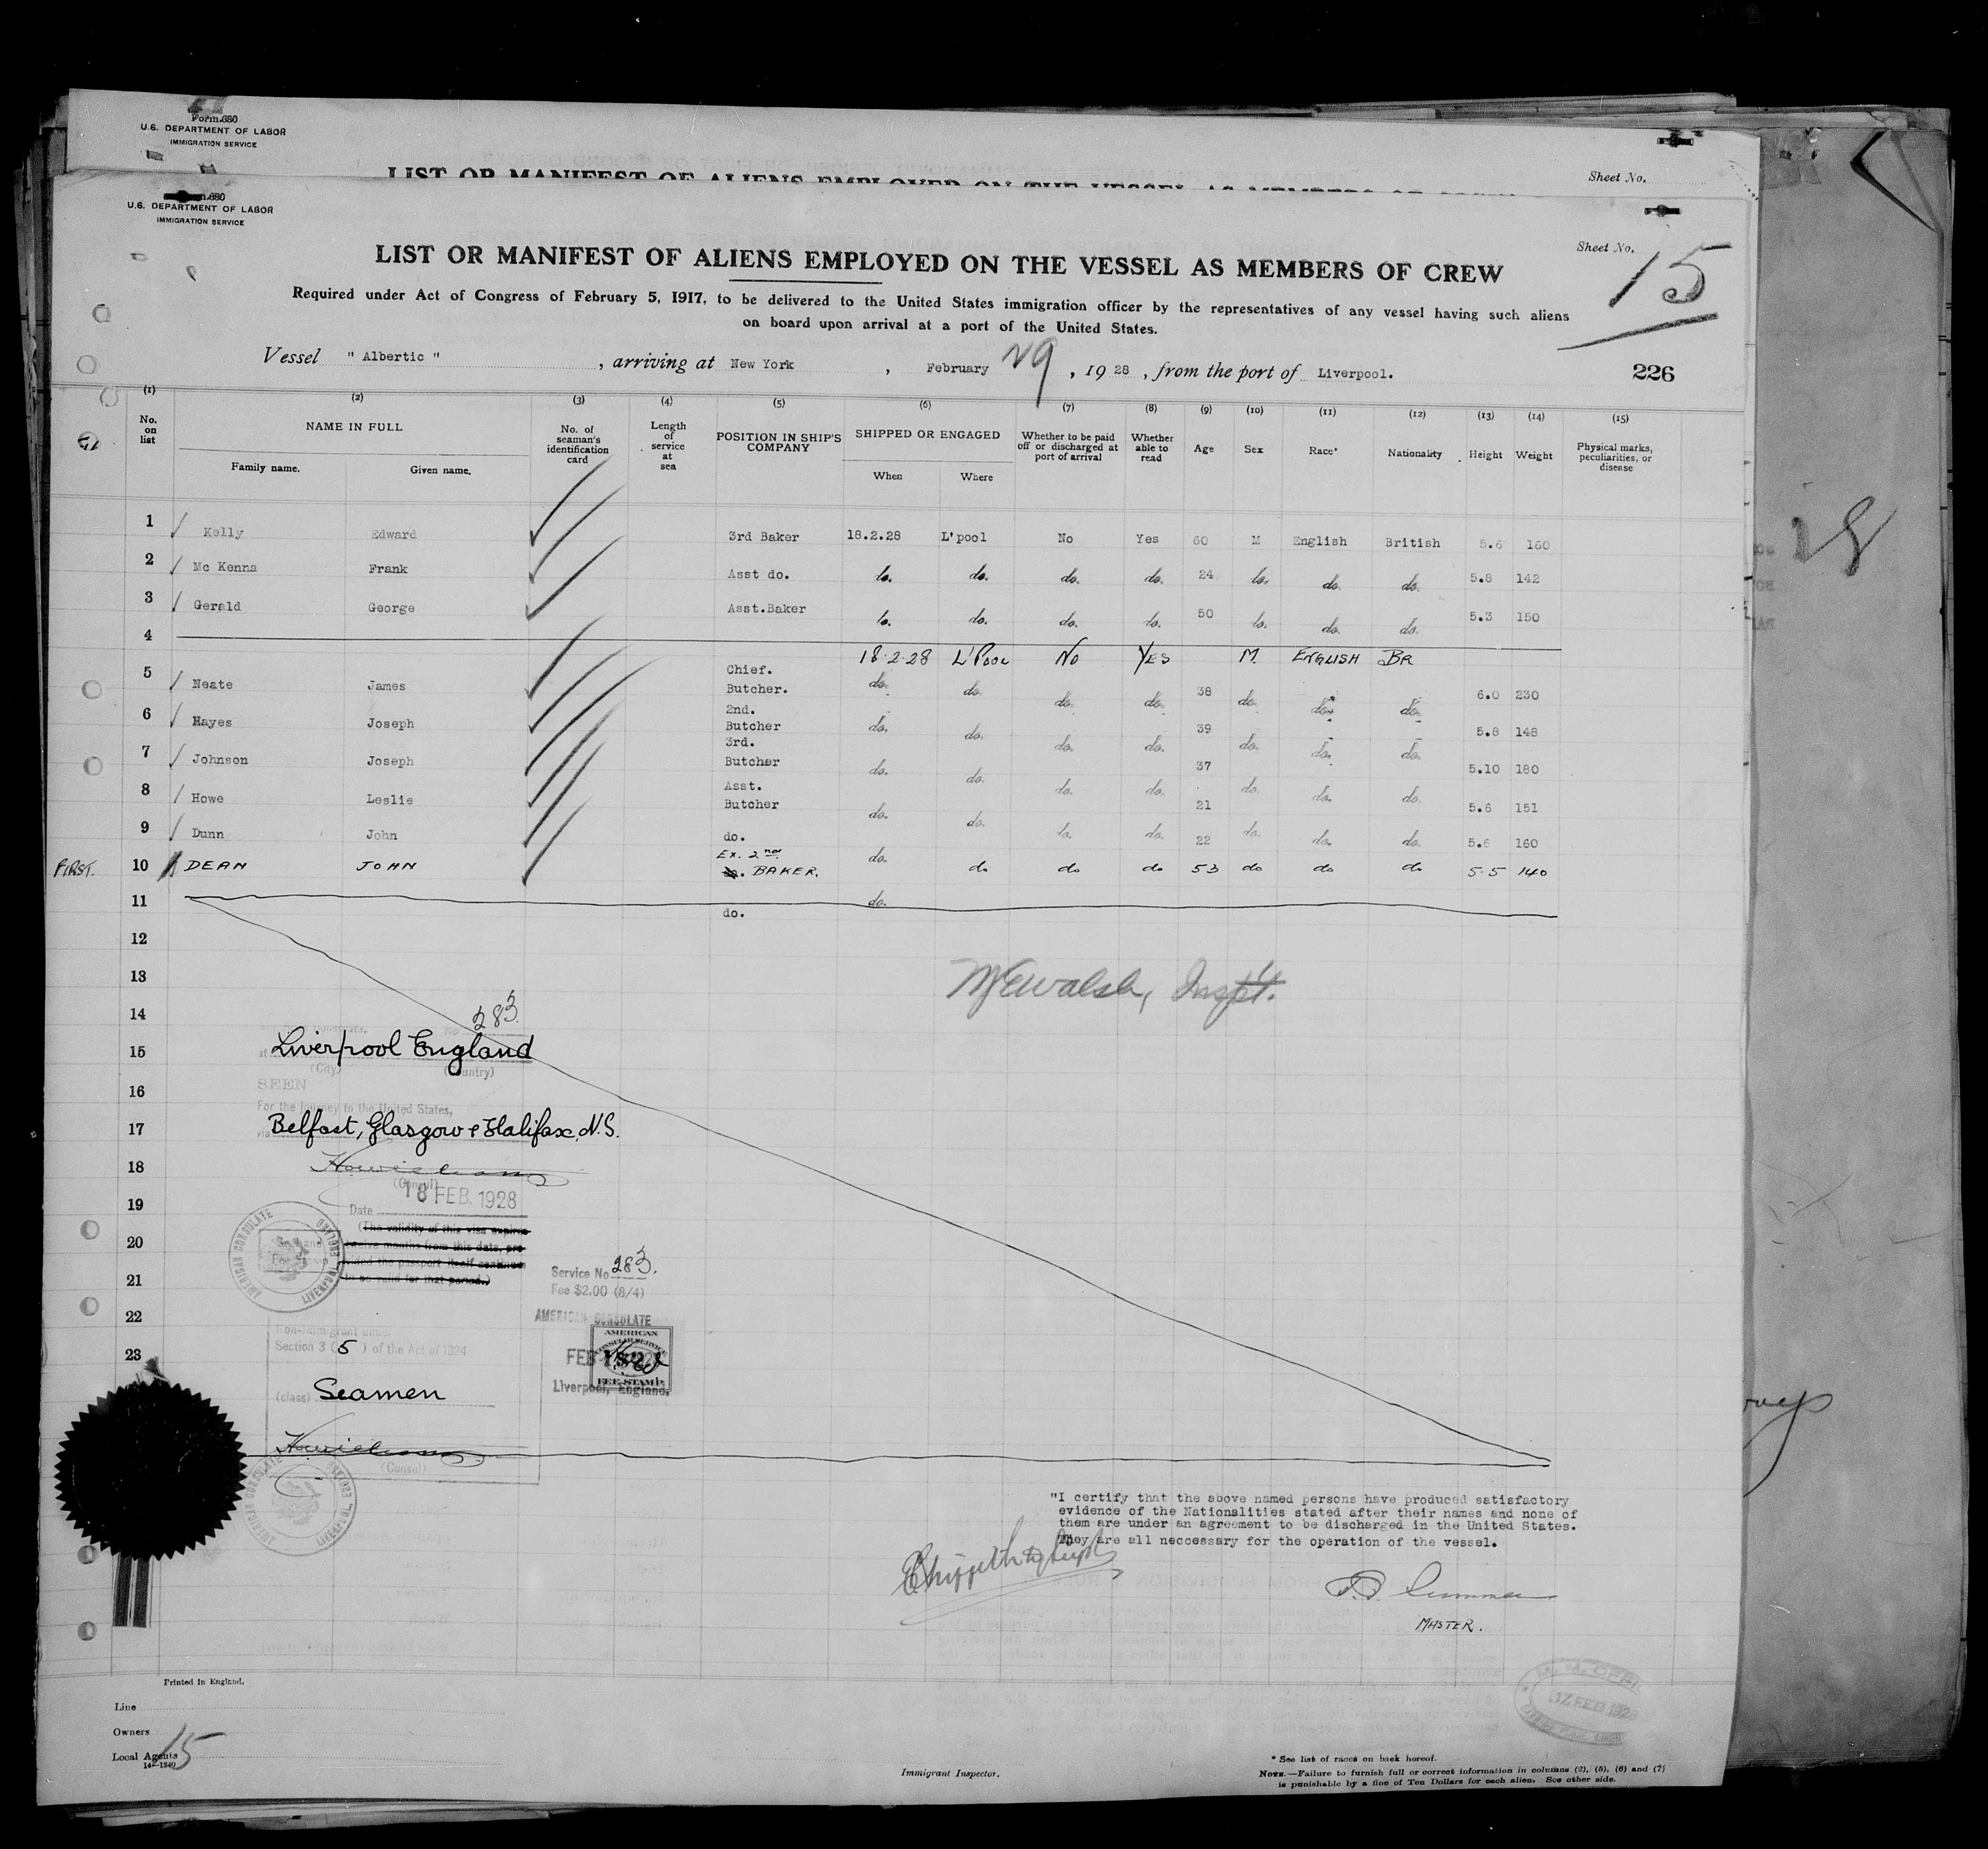 Form 680
U.S. DEPARTMENT OF LABOR
IMMIGRATION SERVICE
LIST OR MANIFEST OF ALIENS EMPLOYED ON THE VESSEL AS MEMBERS OF CREW
Sheet No.
680
U.S. DEPARTMENT OF LABOR
IMMIGRATION SERVICE
Sheet No. 15
LIST OR MANIFEST OF ALIENS EMPLOYED ON THE VESSEL AS MEMBERS OF CREW
Required under Act of Congress of February 5, 1917, to be delivered to the United States immigration officer by the representatives of any vessel having such aliens
on board upon arrival at a port of the United States.
Vessel " Albertic " , arriving at New York , February 29 , 1928 , from the port of Liverpool.
226
(1) (2) (3) (4) (5) (6) (7) (8) (9) (10) (11) (12) (13) (14) (15)
No. on list NAME IN FULL Family name. Given name. No. of seaman's identification card Length of service at sea POSITION IN SHIP'S COMPANY SHIPPED OR ENGAGED When Where Whether to be paid off or discharged at port of arrival Whether able to read Age Sex Race* Nationality Height Weight Physical marks, peculiarities, or disease
1 Kelly Edward 3rd Baker 18.2.28 L'pool No Yes 60 M English British 5.6 160
2 Mc Kenna Frank Asst do. do. do. do. do. 24 do. do. do. 5.8 142
3 Gerald George Asst.Baker do. do. do. do. 50 do. do. do. 5.3 150
4 18·2·28 L'POOL NO YES M. ENGLISH BR
5 Neate James Chief. Butcher. do. do. do. do. 38 do. do. do. 6.0 230
6 Hayes Joseph 2nd. Butcher do. do. do. do. 39 do. do. do. 5.8 148
7 Johnson Joseph 3rd. Butcher do. do. do. do. 37 do. do. do. 5.10 180
8 Howe Leslie Asst. Butcher do. do. do. do. 21 do. do. do. 5.6 151
9 Dunn John do. do. do. do. 22 do. do. do. 5.6 160
FIRST. 10 DEAN JOHN Ex. 2nd do. BAKER. do. do do do 53 do do do 5·5 140
11 do. do.
12
13
14
15
16
17
18
19
20
21
22
23
Inspt.
283
Liverpool England
(City) (Country)
SEEN
For the journey to the United States,
via Belfast, Glasgow & Halifax, N.S.
(Consul)
Date 18 FEB. 1928
(The validity of this visa expires
twelve months from this date, pro-
vided the passport itself continues
to be valid for that period.)
AMERICAN CONSULATE
LIVERPOOL, ENGLAND
Service No 283.
Fee $2.00 (8/4)
AMERICAN CONSULATE
AMERICAN
CONSULAR SERVICE
FEE STAMP
FEB
Liverpool, England.
Non-immigrant under
Section 3 (5) of the Act of 1924
(class) Seamen
(Consul)
AMERICAN CONSULATE
LIVERPOOL, ENGLAND
"I certify that the above named persons have produced satisfactory
evidence of the Nationalities stated after their names and none of
them are under an agreement to be discharged in the United States.
They are all neccessary for the operation of the vessel.
MASTER.
Printed in England.
Line
Owners
Local Agents
14—1240
15
Immigrant Inspector.
* See list of races on back hereof.
NOTE.—Failure to furnish full or correct information in columns (2), (5), (6) and (7)
is punishable by a fine of Ten Dollars for each alien. See other side.